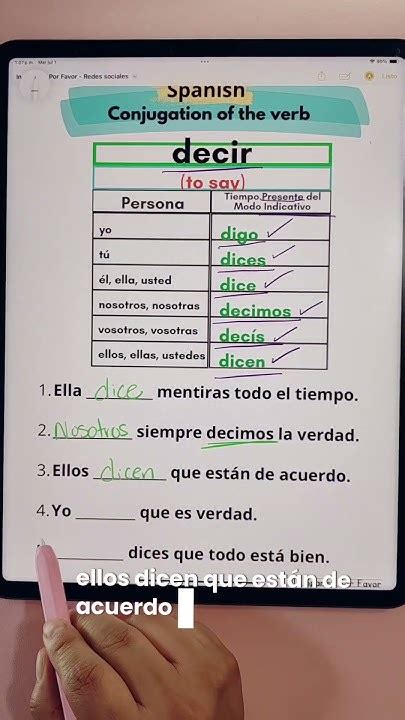 7:07 p.m. Mar jul 1
80%
Por Favor - Redes sociales
Listo
Spanish
Conjugation of the verb
decir
(to say)
Persona
Tiempo Presente del
Modo Indicativo
yo
digo
tú
dices
él, ella, usted
dice
nosotros, nosotras
decimos
vosotros, vosotras
decís
ellos, ellas, ustedes
dicen
1. Ella dice mentiras todo el tiempo.
2. Nosotros siempre decimos la verdad.
3. Ellos dicen que están de acuerdo.
4. Yo ______ que es verdad.
______ dices que todo está bien.
Favor
ellos dicen que están de
acuerdo